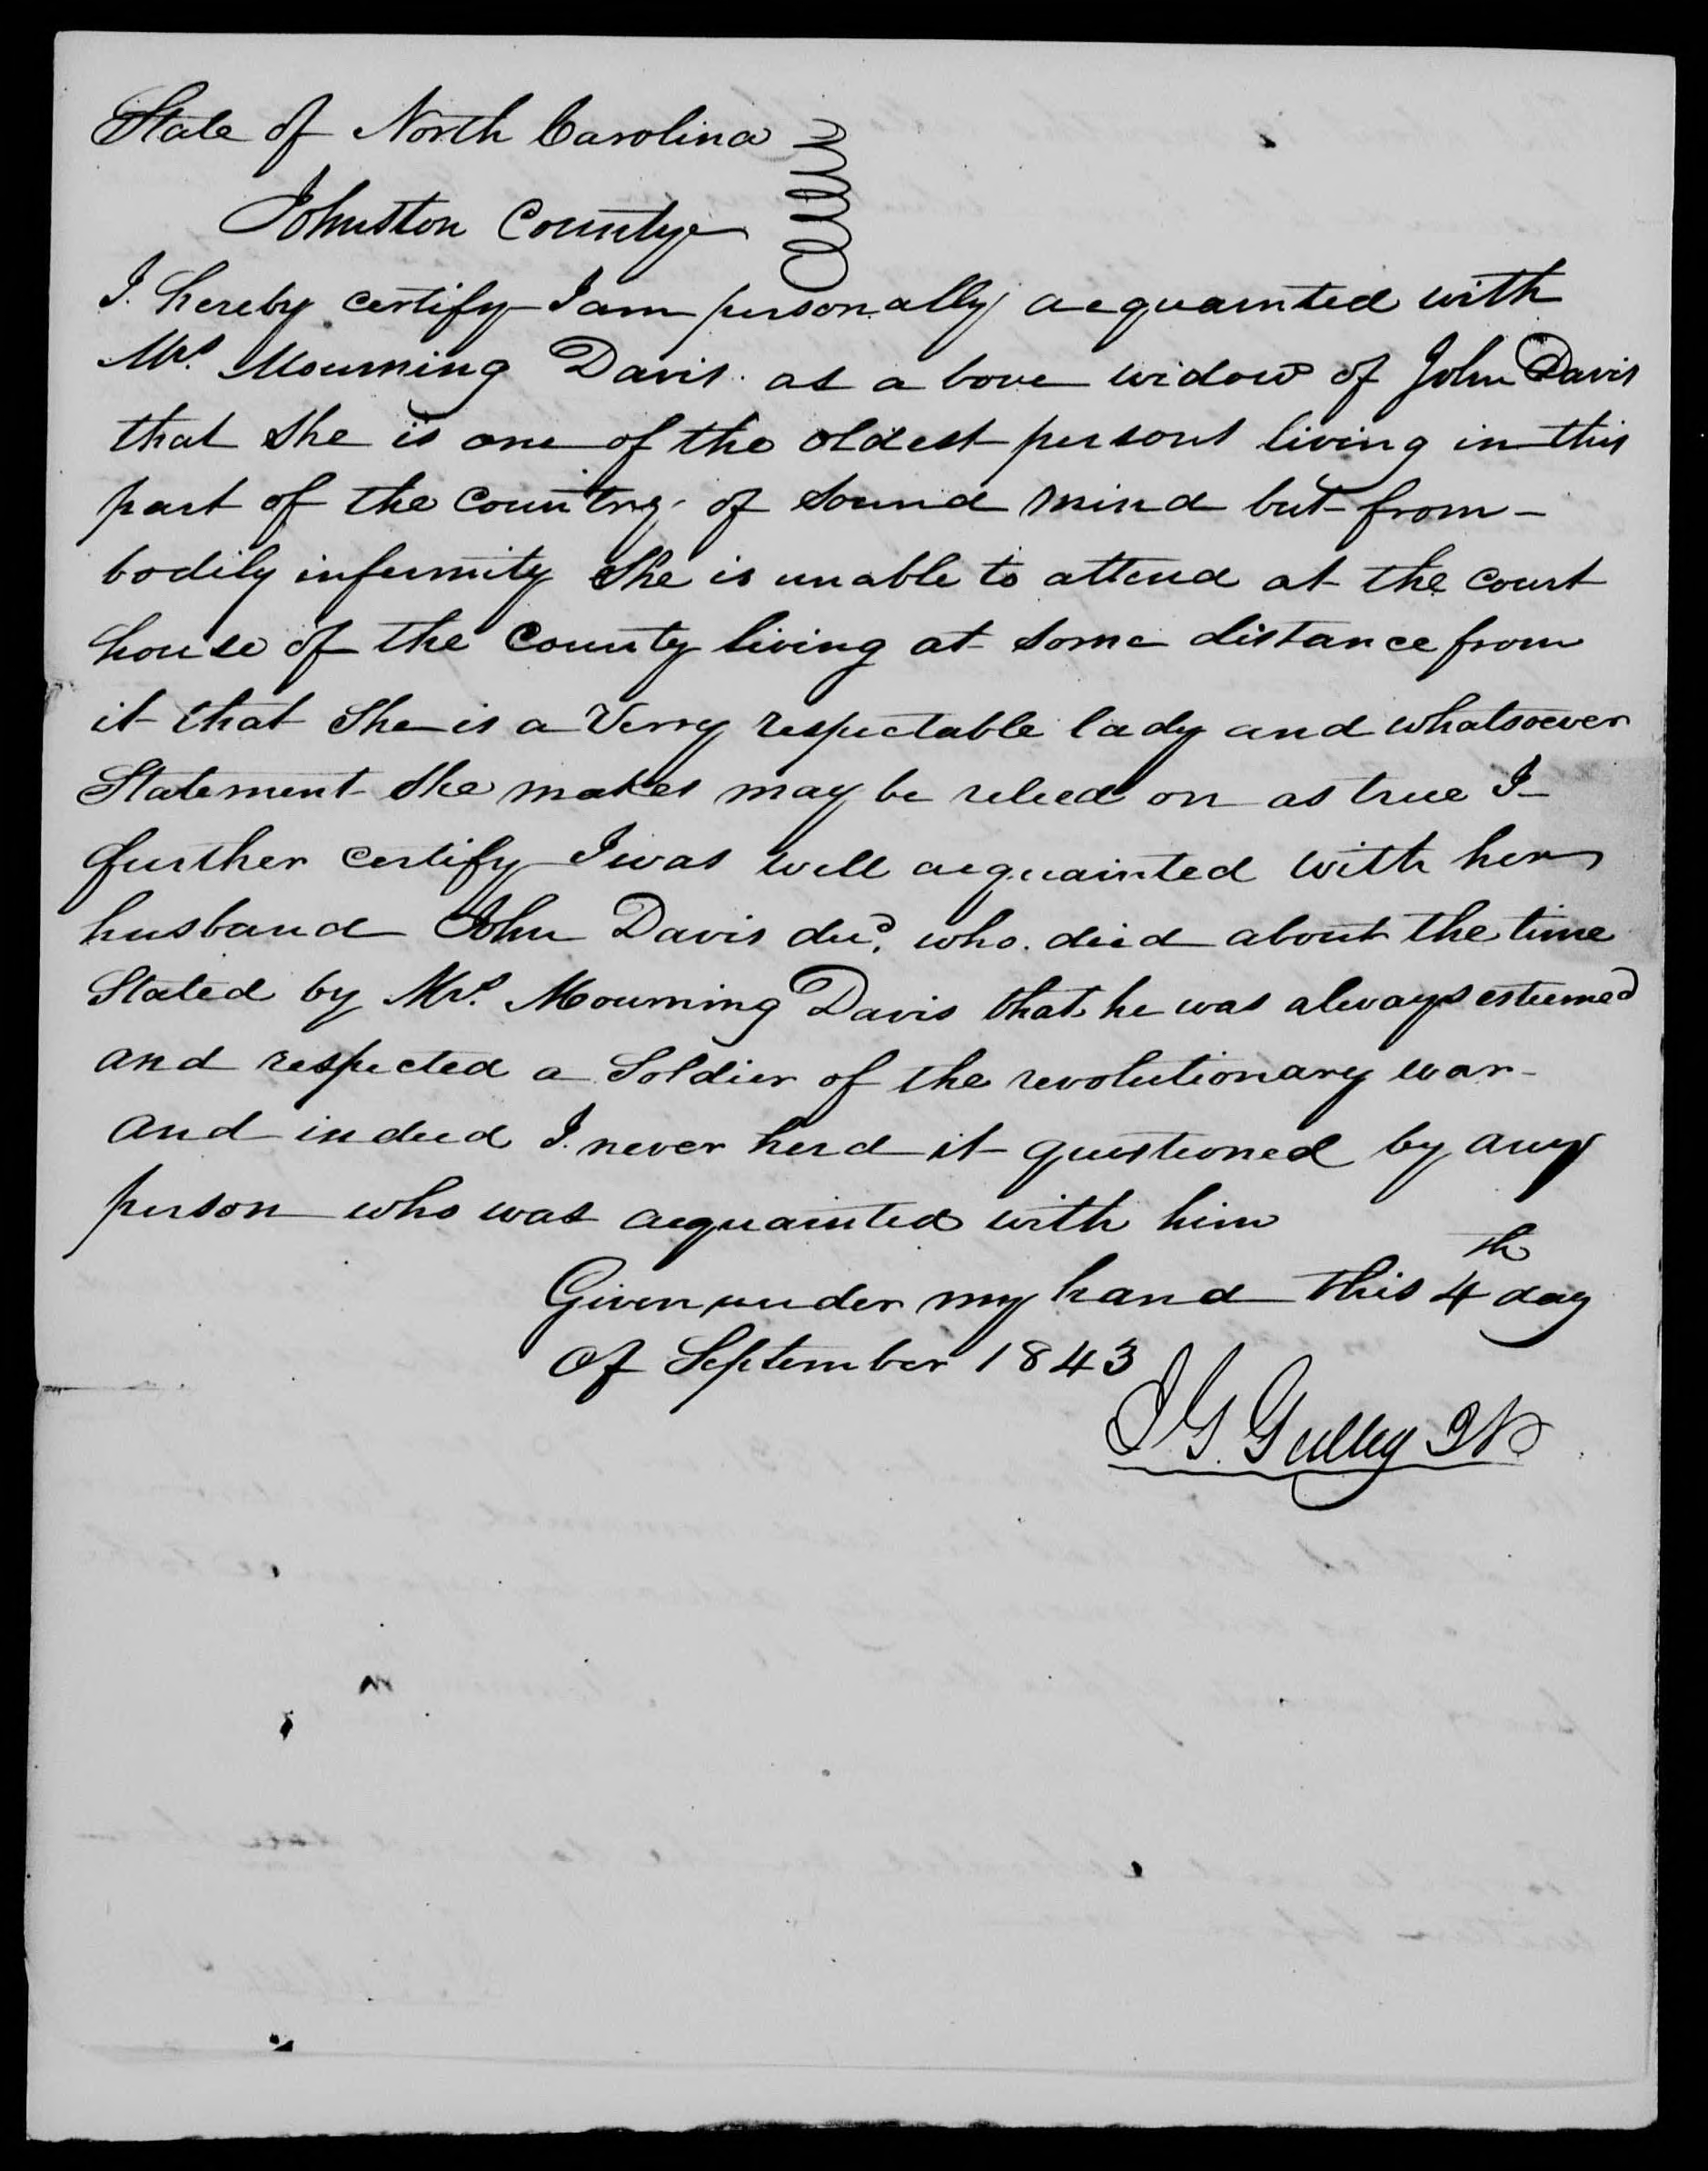 State of North Carolina
Johnston County
I. hereby certify I am personally acquainted with
Mrs. Mourning Davis. as a bove widow of John Davis
that She is one of the oldest persons living in this
part of the Country. of Sound mind but from -
bodily infermity She is unable to attend at the court
house of the County living at some distance from
it that She is a Verry respectable lady and whatsoever
Statement She makes may be relied on as true I
further certify I was well acquainted with her
husband John Davis decd. who. died about the time
Stated by Mrs. Mourning Davis that he was always esteemed
and respected a Soldier of the revolutionary war -
and indeed I. never herd it questioned by any
person who was acquainted with him
Given under my hand this 4th day
of September 1843
J G. Gulley JP